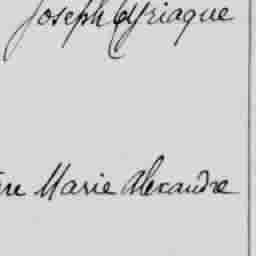 Joseph Cyriaque
Marie Alexandre